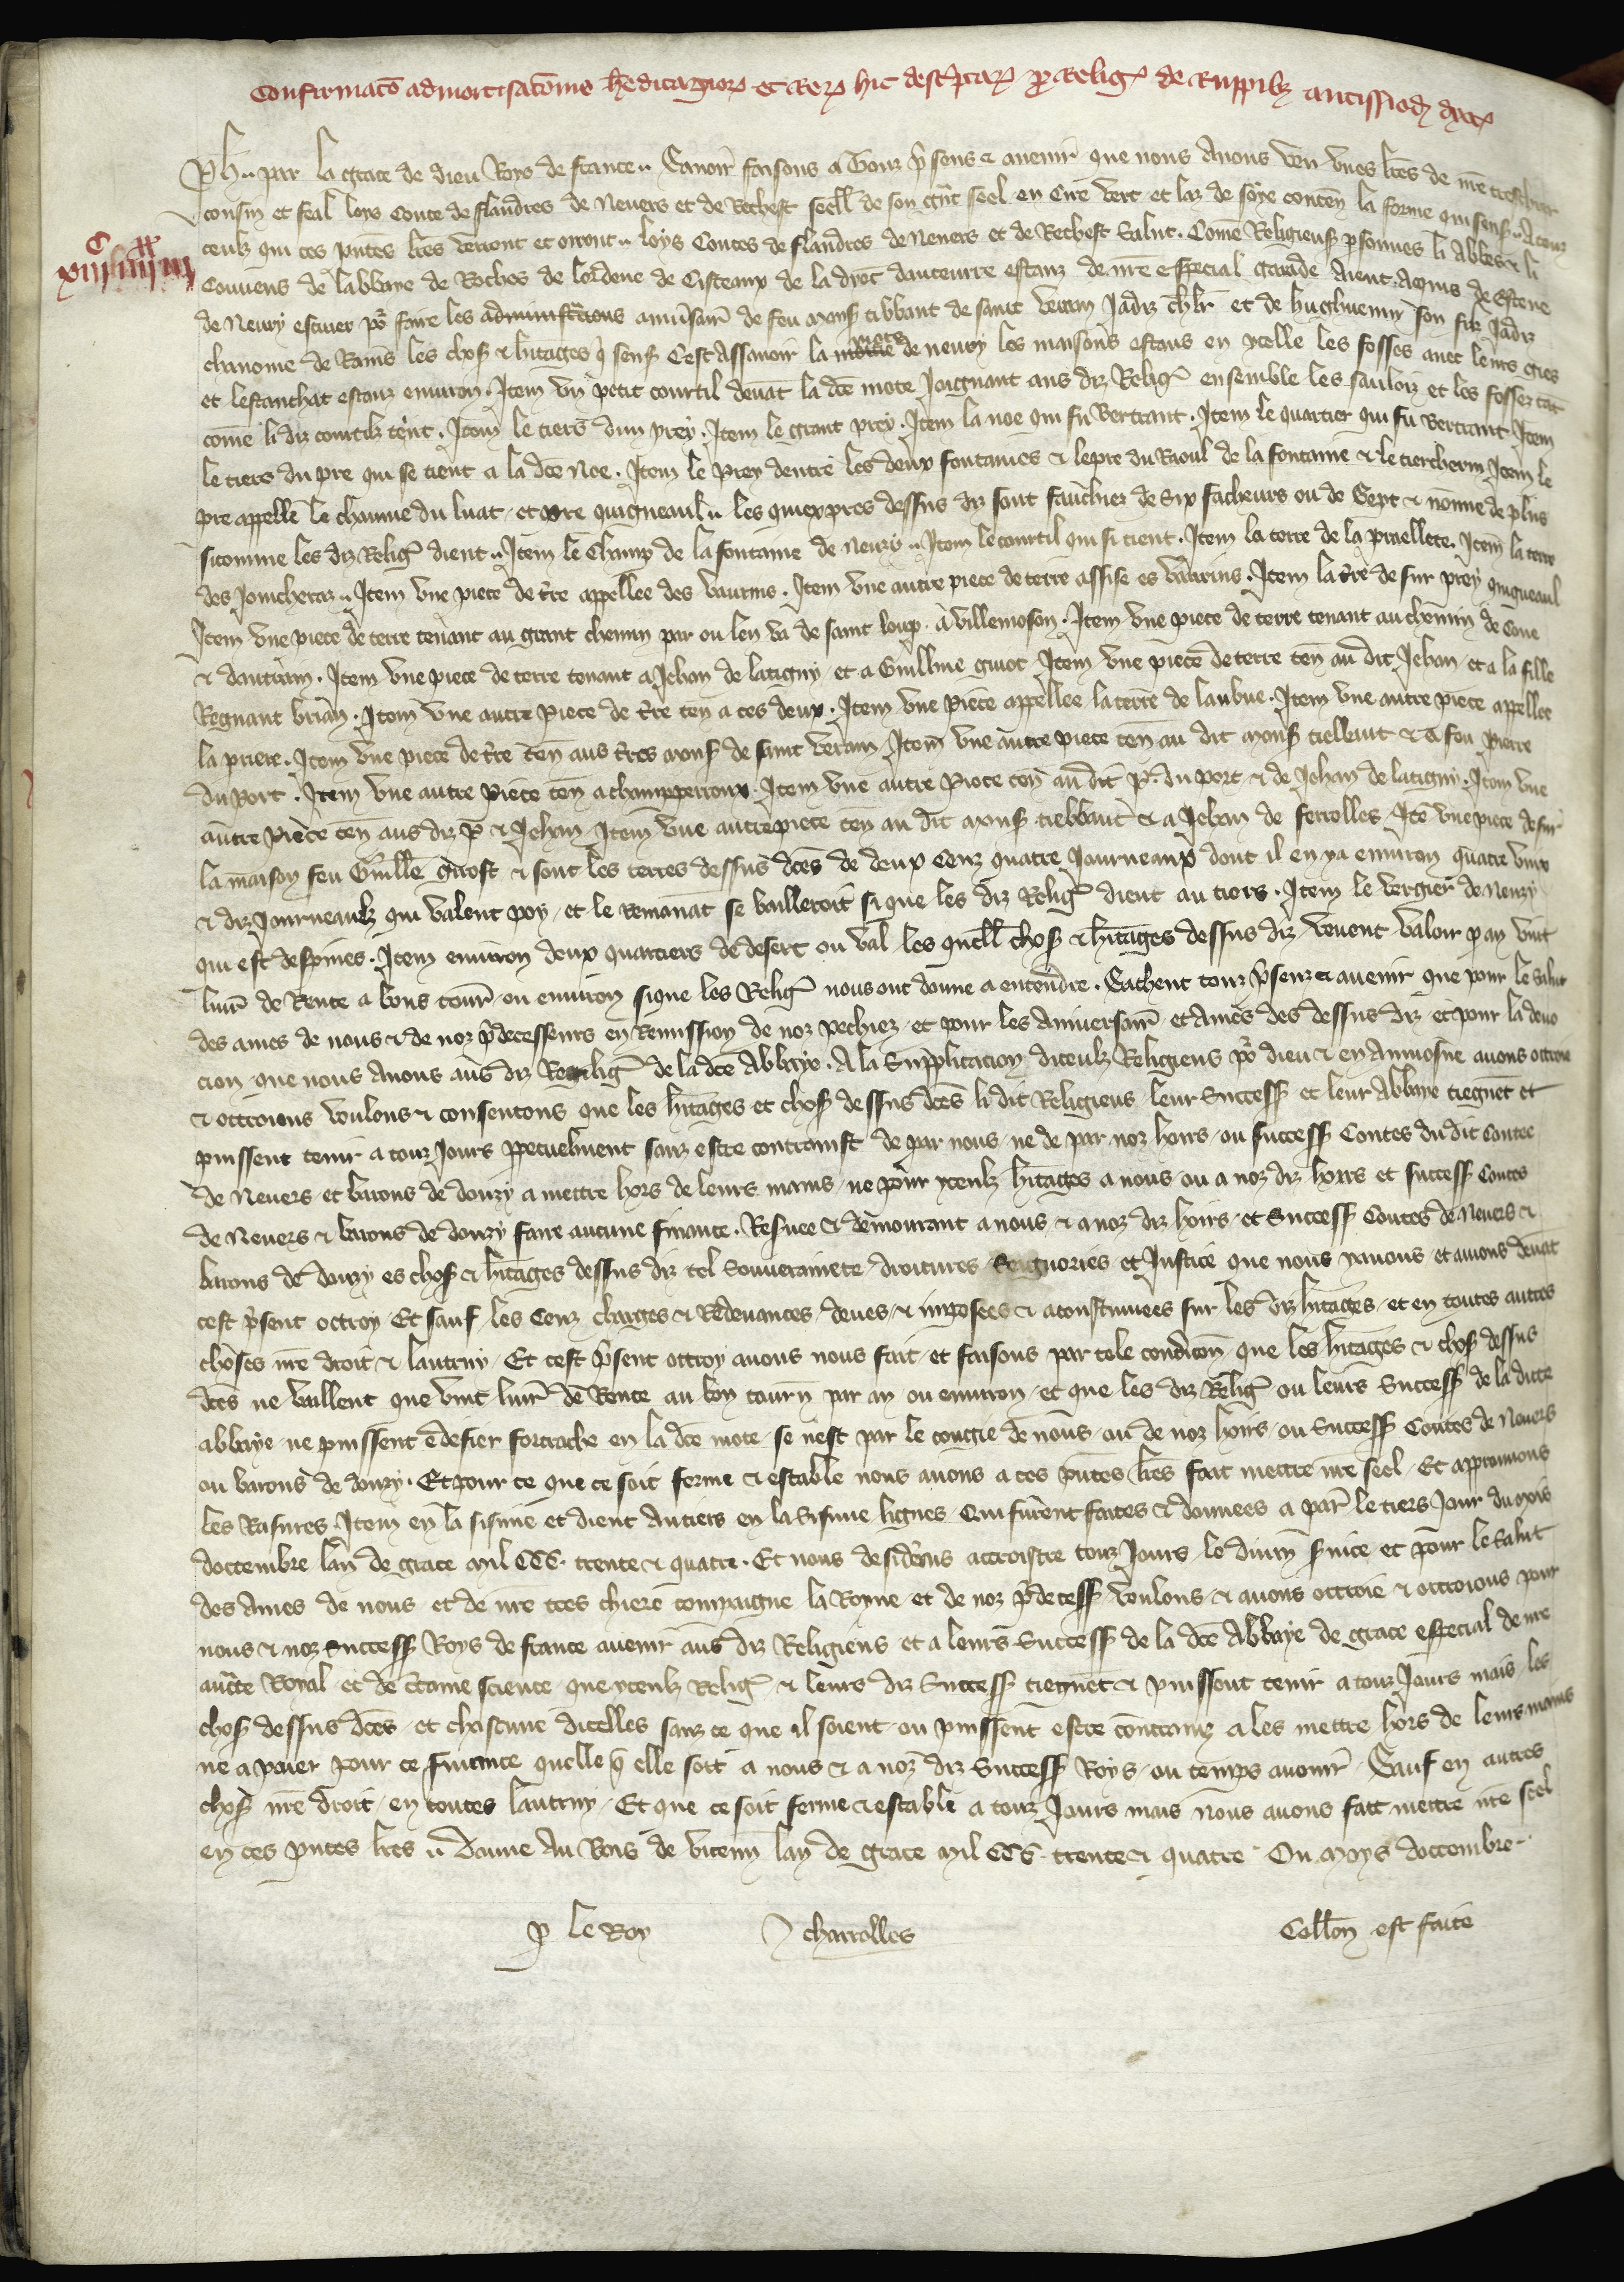 Confirmacō admortisacōnis h̄editagior⁊ et rer⁊ hic descp̄tar⁊ p̱ Relig̉ de Ruppib⁊ autissiod̉ dyoc̉
Ph̉ .. par la grace de dieu Roys de france .. Sauoir̉ faisons a Touz p̄sens ⁊ auenir̉ que nous Auons veu vnes lr̄es de nr̄e treschier
cousin et feal loys Conte de flandres de Neuers et de Rethest seell̉ de son gn̄t seel en Cire vert et laz de soye conten̄ la forme qui sensꝭ .. A touz
ceulz qui ces pn̄tes lr̄es verront et orront .. loys Contes de flandres de Neuers et de Rethest Salut . Com̄e Religieusꝭ ꝑsonnes li Abbes ⁊ li
Couuens de labbaye de Roches de lordene de Cisteaux de la dyoc̉ dauceurre estanz de nr̄e especial garde Aient Aquis de Estene
de Neury escuier pỏ faire les amīsair̉ de feu monsꝭ tibbaut de saint verain Jadiz chlr̄ et de hughuenin son filz Jadiz
chanoine de Rains les chosꝭ ⁊ hītages q̄ sensꝭ Cest Assauoir la mote de neury les maisons estans en ycelle les fosses auec leurs gies
et lestanchat estanz enuiron . Item vn petit courtil deuāt la dc̄e mote Joignant aus diz Relig̉ ensemble les sauloiz et les fossez tāt
com̄e li diz courtilz tēnt . Item le tiers dun prey . Item le grant prey . Item la noe qui fu Bertrant . Item le quartier qui fu Bertrant Item
le tiers du pre qui se tient a la dc̄e Noe . Item le Prey dentre les deux fontaines ⁊ lepre du Raoul de la fontaine ⁊ le tiercherin Item le
pre appelle le chaume du luat / et pre quigneaul .. les quiex pres dessus diz sont fauchiez de Six facheurs ou de Sept ⁊ nonne de plus
sicomme les diz Relig̉ dient .. Item le Champ de la fontaine de Neury .. Item le courtil qui si tient . Item la terre de la praellete . Item la terre
des Joncheraz .. Item vne piece de tr̄e appellee des vaurins . Item vne autre piece de terre assise es vaurins . Item la tr̄e de sur prey quigneaul
Item vne piece de terre tenant au grant chemin par ou len va de saint loup . a villemoson . Item vne piece de terre tenant au chemin de Cone
⁊ dantrain . Item vne piece de terre tenant a Jehan de latigny / et a Guillme guiot . Item vne piece de terre ten̄ au dit Jehan / et a la fille
Regnaut brian . Item vne autre Piece de tr̄e ten̄ a ces deux . Item vne Piece appellee la terre de laubue . Item vne autre piece appellee
la priere . Item vne piece de tr̄e ten̄ aus tr̄es monsꝭ de saint verain Item vne autre piece ten̄ au dit monsꝭ tiebaut ⁊ a feu Pierre
du Port . Item vne autre Piece ten̄ a champperroux . Item vne autre Piece ten̄ au dit p̉. du port ⁊ de Jehan de latigny . Item vne
autre Piece ten̄ aus diz p̉ ⁊ Jehan Item vne autre piece ten̄ au dit monsꝭ tiebbaut ⁊ a Jehan de ferrolles Itē vne piece de sur
la maison feu Guille girost ⁊ sont les terres dessus dc̄es de deux Cenz quatre Journeaux dont il en ya enuiron quatre vinz
⁊ diz Journeaulz qui valent poy / et le Remanāt se bailleroit si que les diz Relig̉ dient au tiers . Item le vergier de Neury
qui est despines . Item enuiron deux quartiers de desert ou val les quell̉ chosꝭ ⁊ hītages dessus diz veuent valoir ꝑ an vint
liur̉ de Rente a bons tour̉ ou enuiron sique les Relig̉ nous ont donne a entendre . Sachent touz p̄senz ⁊ auenir que pour le Salut
des ames de nous ⁊ de noz p̄decesseurs en Remission de noz pechiez / et pour les Aniuersair̉ et Ames des dessus diz / et pour la deuo
cion que nous Auons aus diz Relig̉ de la dc̄e Abbaye . A la Supplicacion diceulz Religieus pỏ dieu ⁊ en Aumosne auons ottroie
⁊ ottroions voulons ⁊ consentons que les hītages et chosꝭ dessus dc̄es li dit Religieus leur Successꝭ et leur Abbaye tiegnēt et
puissent tenir a touz Jours ꝑpetuelment sanz estre contrainst de par nous / ne de par noz hoirs / ou successꝭ Contes du dit Contee
de Neuers / et barons de donzy a mettre hors de leurs mains / ne pour yceulz hītages a nous ou a noz diz hoirs et successꝭ Contes
de Neuers ⁊ barons de donzy faire aucune finance . Resuee ⁊ demourant a nous ⁊ a noz diz hoirs / et Successꝭ Contes de Neuers ⁊
barons de donzy es chosꝭ ⁊ hītages dessus diz tel Souuerainete / droitures Seignories et Justice que nous y auons / et auions deuāt
cest p̄sent octroy . Et sauf / les Cenz charges ⁊ Redeuances / deues / ⁊ imposees ⁊ acoustumees sur les diz hītages / et en toutes autres
choses nr̄e droit ⁊ lautruy / Et cest p̄sent ottroy auons nous fait / et faisons par tele condicōn que les hītages ⁊ chosꝭ dessus
dc̄es ne vaillent que vint liur̉ de Rente au bon tourn̄ par an ou enuiron / et que les diz Relig̉ ou leurs Successꝭ de la dicte
abbaye / ne puissent edefier forterache en la dc̄e mote / se nest par le congie de nous / ou de noz hoirs / ou Successꝭ Contes de Neuers
ou barons de donzy . Et pour ce que ce soit ferme ⁊ estable nous auons a ces pn̄tes lr̄es fait mettre nr̄e seel / Et approuuons
les Rasures . Item en la sisime et dient Au tiers en la Sisime lignes Qui furent faites ⁊ donnees a par̉ le tiers Jour du mois
doctembre lan de grace mil CCC . trente ⁊ quatre . Et nous desid̉ans accroistre touz Jours / le diuin s̉uice et pour le Salut
des Ames de nous / et de nr̄e tres chiere compaigne la Royne / et de noz p̄decessꝭ voulons / ⁊ auons ottroie ⁊ ottroions pour
nous ⁊ noz Successꝭ Roys de france auenir̉ aus diz Religieus et a leurs Successꝭ de la dc̄e Abbaye de grace especial de nr̄e
auct̄e Royal / et de c̄taine science / que yceulz Relig̉ ⁊ leurs diz Successꝭ tiegnēt ⁊ puissent tenir a touz Jours mais / les
chosꝭ dessus dc̄es / et chascune dicelles sanz ce que il soient / ou puissent estre contrainz a les mettre hors de leurs mains
ne a paier pour ce finance quelle q̄ elle soit a nous ⁊ a noz diz Successꝭ Roys / ou temps auenir̉ . Sauf en autres
chosꝭ nr̄e droit / en toutes lautruy / Et que ce soit ferme ⁊ estable a touz Jours mais nous auons fait mettre nr̄e seel
en ces pn̄tes lr̄es .. Donne Au Bois de vicenn̄ lan de grace mil CCC . trente ⁊ quatre Ou moys doctembre
ꝑ le Roy charrolles Coll̄on est faite